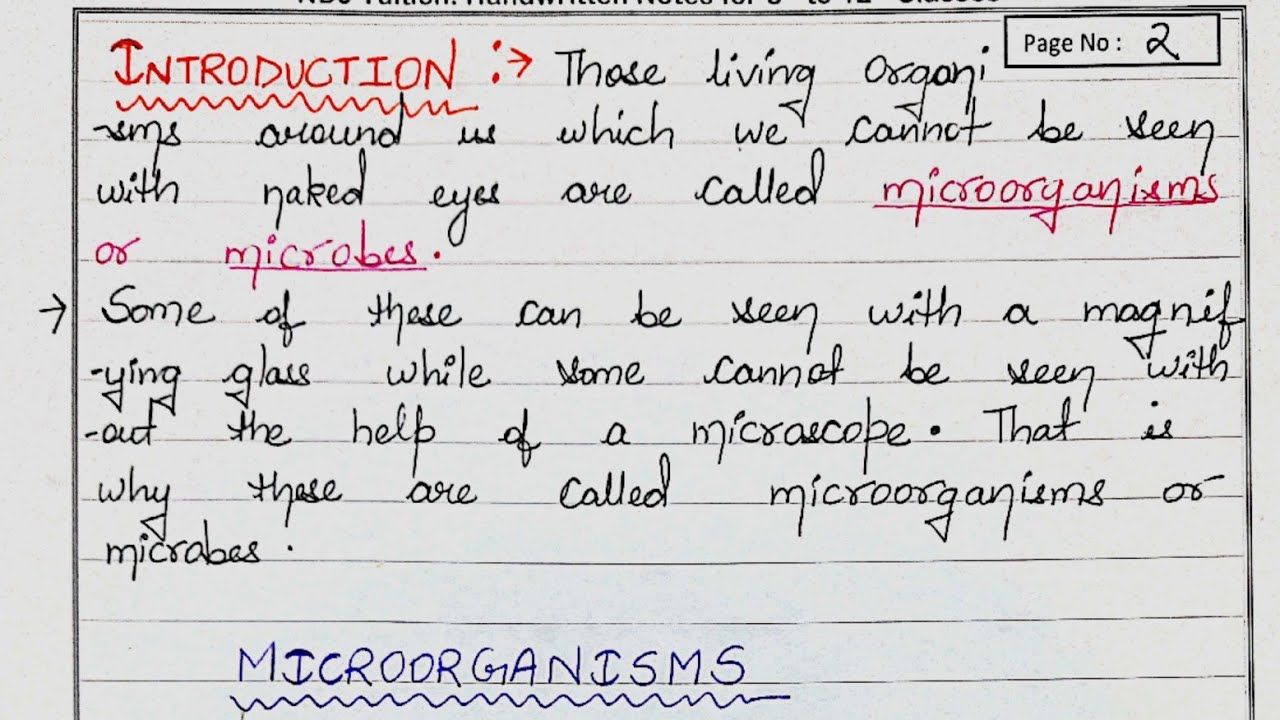 Page No : 2
INTRODUCTION :→ Those living organi
-sms around us which we cannot be seen
with naked eyes are called microorganisms
or microbes.
→ Some of these can be seen with a magnif
-ying glass while some cannot be seen with
-out the help of a microscope. That is
why these are called microorganisms or
microbes.
MICROORGANISMS